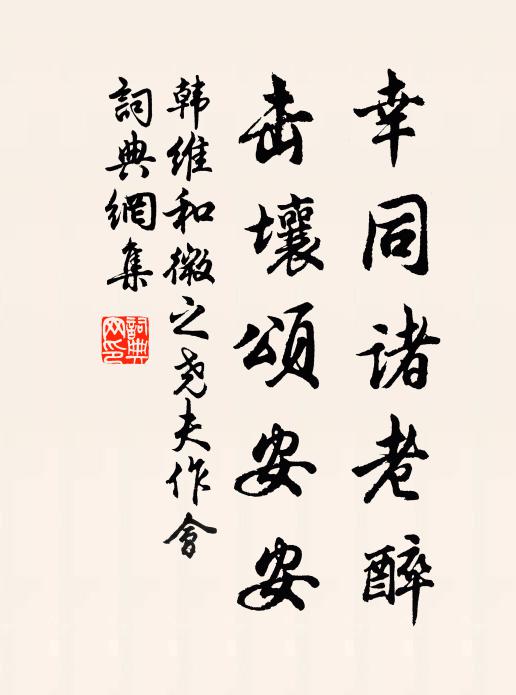 幸同诸老醉
击壤颂安安
韩维和微之尧夫作會
詞典網集
詞典网印